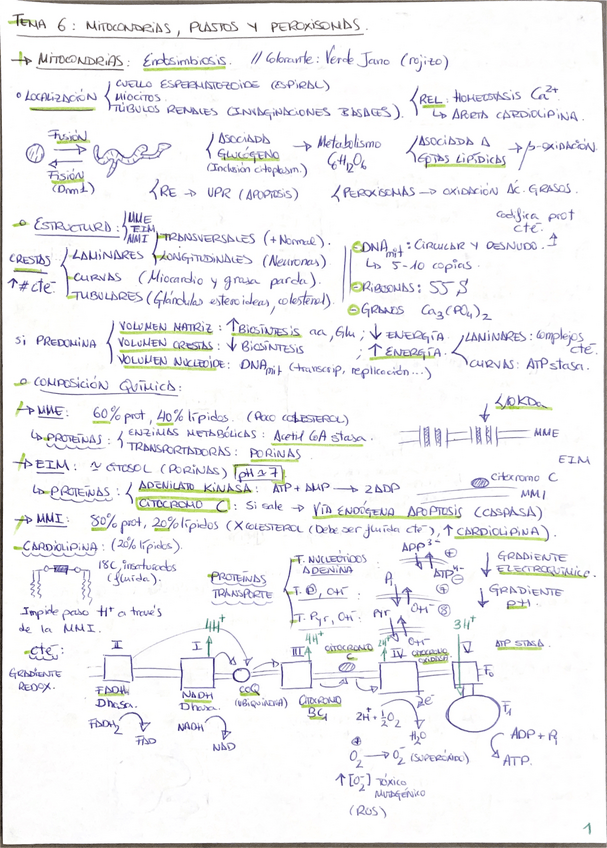 TEMA 6: MITOCONDRIAS, PLASTOS Y PEROXISOMAS.
→ MITOCONDRIAS: Endosimbiosis. // Colorante: Verde Jano (rojizo)
• LOCALIZACIÓN
CUELLO ESPERMATOZOIDE (ESPIRAL)
MIOCITOS
TÚBULOS RENALES (INVAGINACIONES BASALES).
REL: HOMEOSTASIS Ca2+
↳ APORTA CARDIOLIPINA.
Fusión
Fisión
(Dnm1)
ASOCIADA
GLUCÓGENO
(Inclusión citoplasm.)
→ Metabolismo
C6H12O6
ASOCIADA A
GOTAS LIPÍDICAS
→ β-OXIDACIÓN
RE → UPR (APOPTOSIS)
PEROXISOMAS → OXIDACIÓN ÁC. GRASOS.
• ESTRUCTURA:
MME
EIM
MMI
CRESTAS
↑# cte-
LAMINARES
TRANSVERSALES (+Normal).
LONGITUDINALES (Neuronas)
CURVAS (Miocardio y grasa parda).
TUBULARES (Glándulas esteroideas, colesterol).
codifica prot
cte-
DNAmit: CIRCULAR Y DESNUDO.
↳ 5-10 copias.
RIBOSOMAS: 55 S
GRANOS Ca3(PO4)2
SI PREDOMINA
VOLUMEN MATRIZ: ↑ BIOSÍNTESIS aa, Glu; ↓ ENERGÍA.
VOLUMEN CRESTAS: ↓ BIOSÍNTESIS ; ↑ ENERGÍA.
LAMINARES: complejos cte-
CURVAS: ATPstasa.
VOLUMEN NUCLEOIDE: DNAmit (transcrip, replicación...)
• COMPOSICIÓN QUÍMICA:
→ MME: 60% prot, 40% lípidos. (Poco COLESTEROL)
↳ PROTEÍNAS:
ENZIMAS METABÓLICAS: Acetil CoA stasa.
TRANSPORTADORAS: PORINAS
KDa
MME
EIM
→ EIM: ≃ CITOSOL (PORINAS) pH ≃ 7
↳ PROTEÍNAS:
ADENILATO KINASA: ATP + AMP → 2ADP
CITOCROMO C: Si sale → VÍA ENDÓGENA APOPTOSIS (CASPASA)
citocromo C
MMI
→ MMI: 80% prot, 20% lípidos (X COLESTEROL (Debe ser fluida cte-), ↑ CARDIOLIPINA).
CARDIOLIPINA: (20% lípidos).
18C, insaturados
(fluida).
Impide paso H+ a través
de la MMI.
PROTEÍNAS
TRANSPORTE
T. NUCLEÓTIDOS
ADENINA
T. P, OH-
T. Pyr, OH-
ADP3-
ATP4-
Pi
OH-
Pyr
OH-
GRADIENTE
ELECTROQUÍMICO.
GRADIENTE
pH.
cte-:
GRADIENTE
REDOX.
II
FADH2
Dhasa.
FADH2
FAD
I
4H+
NADH
Dhasa.
NADH
NAD
CoQ
(UBIQUINONA)
III
4H+
CITOCROMO
BC1
CITOCROMO
C
IV
2H+
CITOCROMO
OXIDASA
2e-
2H+ ½O2
H2O
O2 → O2- (SUPERÓXIDO)
↑[O2-] TÓXICO
MUTAGÉNICO
(ROS)
3H+
V
ATP STASA
F0
F1
ADP + Pi
ATP.
1